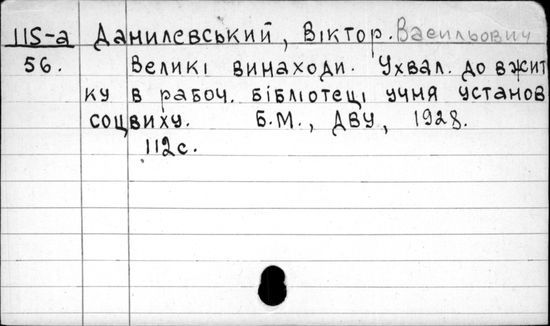 115-а Данилевський, Віктор. Васильович
56. Великі винаходи. Ухвал. до вжит
ку в рабоч. бібліотеці учня установ
соцвиху. Б.М., ДВУ, 1928.
112с.